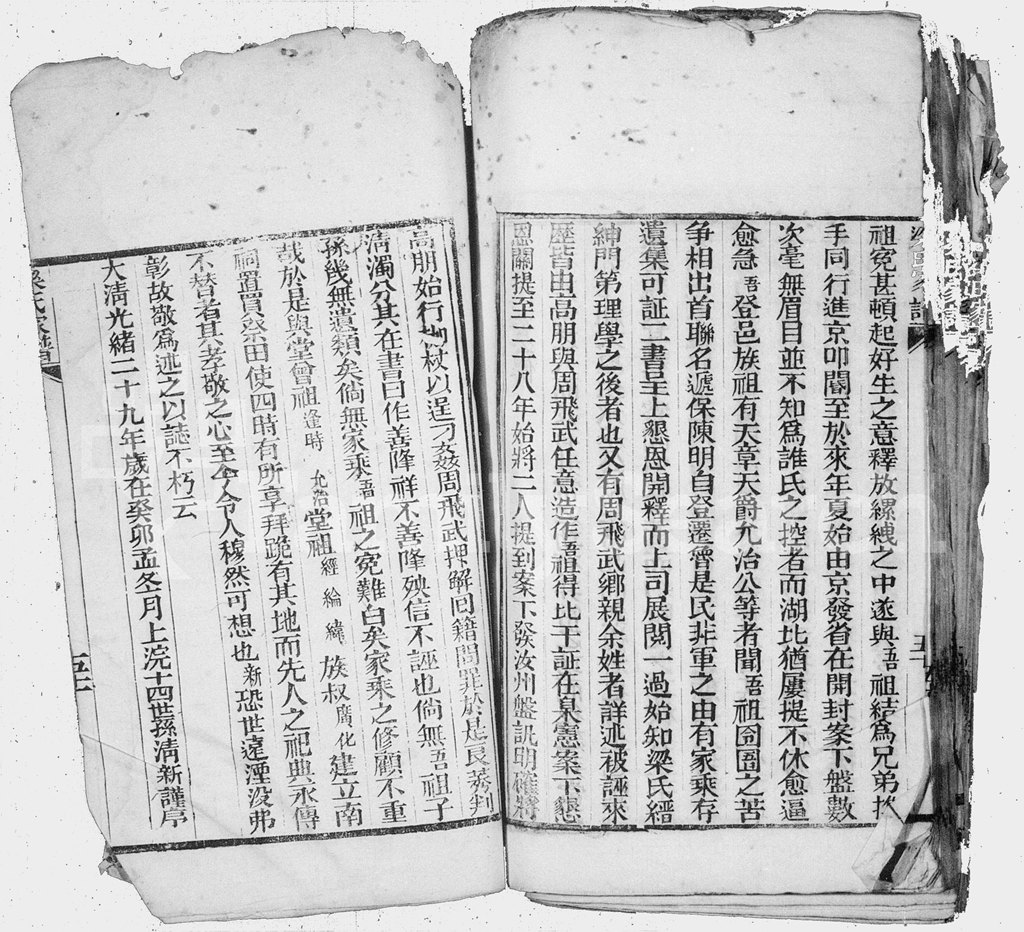 祖冤甚頓起好生之意釋放縲絏之中遂與吾祖結為兄弟
手同行進京叩閽至於來年夏始由京發省在開封案下盤數
次毫無眉目並不知為誰氏之控者而湖北猶屢提不休愈逼
愈急吾登邑族祖有天章天爵允治公等者聞吾祖囹圄之苦
爭相出首聯名遞保陳明自登遷魯是民非軍之由有家乘存
遺集可証二書呈上懇恩開釋而上司展閱一過始知梁氏縉
紳門第理學之後者也又有周飛武鄉親余姓者詳述被誣來
歷皆由高朋與周飛武任意造作吾祖得比干証在臬憲案下懇
恩關提至二十八年始將二人提到案下發汝州盤訊明確將
高朋始行枷杖以逞刁姦周飛武押解回籍問罪於是良莠判
清濁分其在書曰作善降祥不善降殃信不誣也倘無吾祖子
孫幾無遺類矣倘無家乘吾祖之冤難白矣家乘之修顧不重
哉於是與堂曾祖逢時 允浩堂祖經 綸 緯 族叔廣化建立南
祠置買祭田使四時有所享拜跪有其地而先人之祀典永傳
不替者其孝敬之心至今令人穆然可想也新恐世遠湮沒弗
彰故敬為述之以誌不朽云
大清光緒二十九年歲在癸卯孟冬月上浣十四世孫清新謹序
梁氏家譜
五十